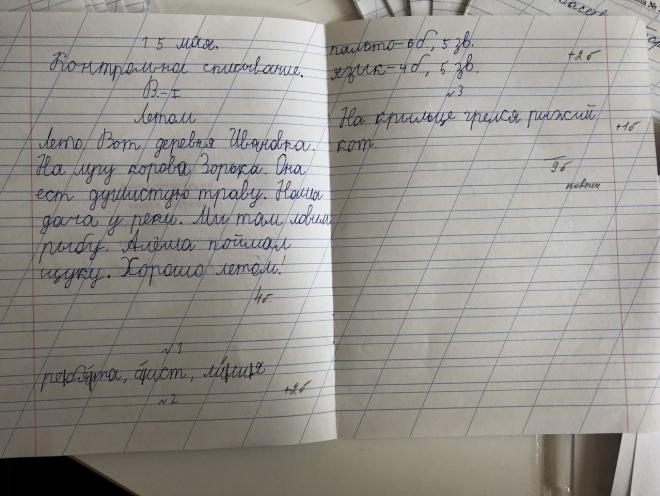 15 мая.
Контрольное списывание.
В.-I
Летом
Лето. Вот деревня Ивановка.
На лугу корова Зорька. Она
ест душистую траву. Наша
дача у реки. Мы там ловим
рыбу. Алёша поймал
щуку. Хорошо летом!
4б.
№1
ребята, аист, линия
+2б
№2
пальто-6б, 5 зв.
+2б
язык-4б, 5 зв.
№3
На крыльце грелся рыжий
+1б
кот.
9б